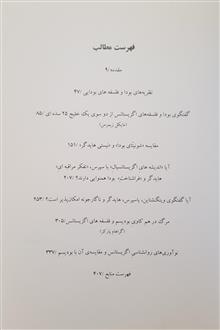 فهرست مطالب
مقدمه / ۹
نظریه‌های بودا و فلسفه‌های بودایی / ۴۷
گفتگوی بودا و فلسفه‌های اگزیستانس از دو سوی یک خلیج ۲۵ سده ای / ۸۵
(مایکل زیمرمن)
مقایسه «شونیتای بودا» و «نیستی هایدگر» / ۱۵۱
آیا «اندیشه های اگزیستانسیال» با سپرس، «تفکر مراقبه ای»
هایدگر و «فراشناخت» بودا همنوایی دارند؟ / ۲۰۷
آیا گفتگوی ویتگنشتاین، یاسپرس، هایدگر و ناگارجونه امکان‌پذیر است؟ / ۲۵۳
مرگ در هم کاوی بودیسم و فلسفه های اگزیستانس / ۳۰۵
(گراهام پارکز)
نوآوری‌های روانشناسی اگزیستانس و مقایسه‌ی آن با بودیسم / ۳۳۷
فهرست منابع / ۴۰۷